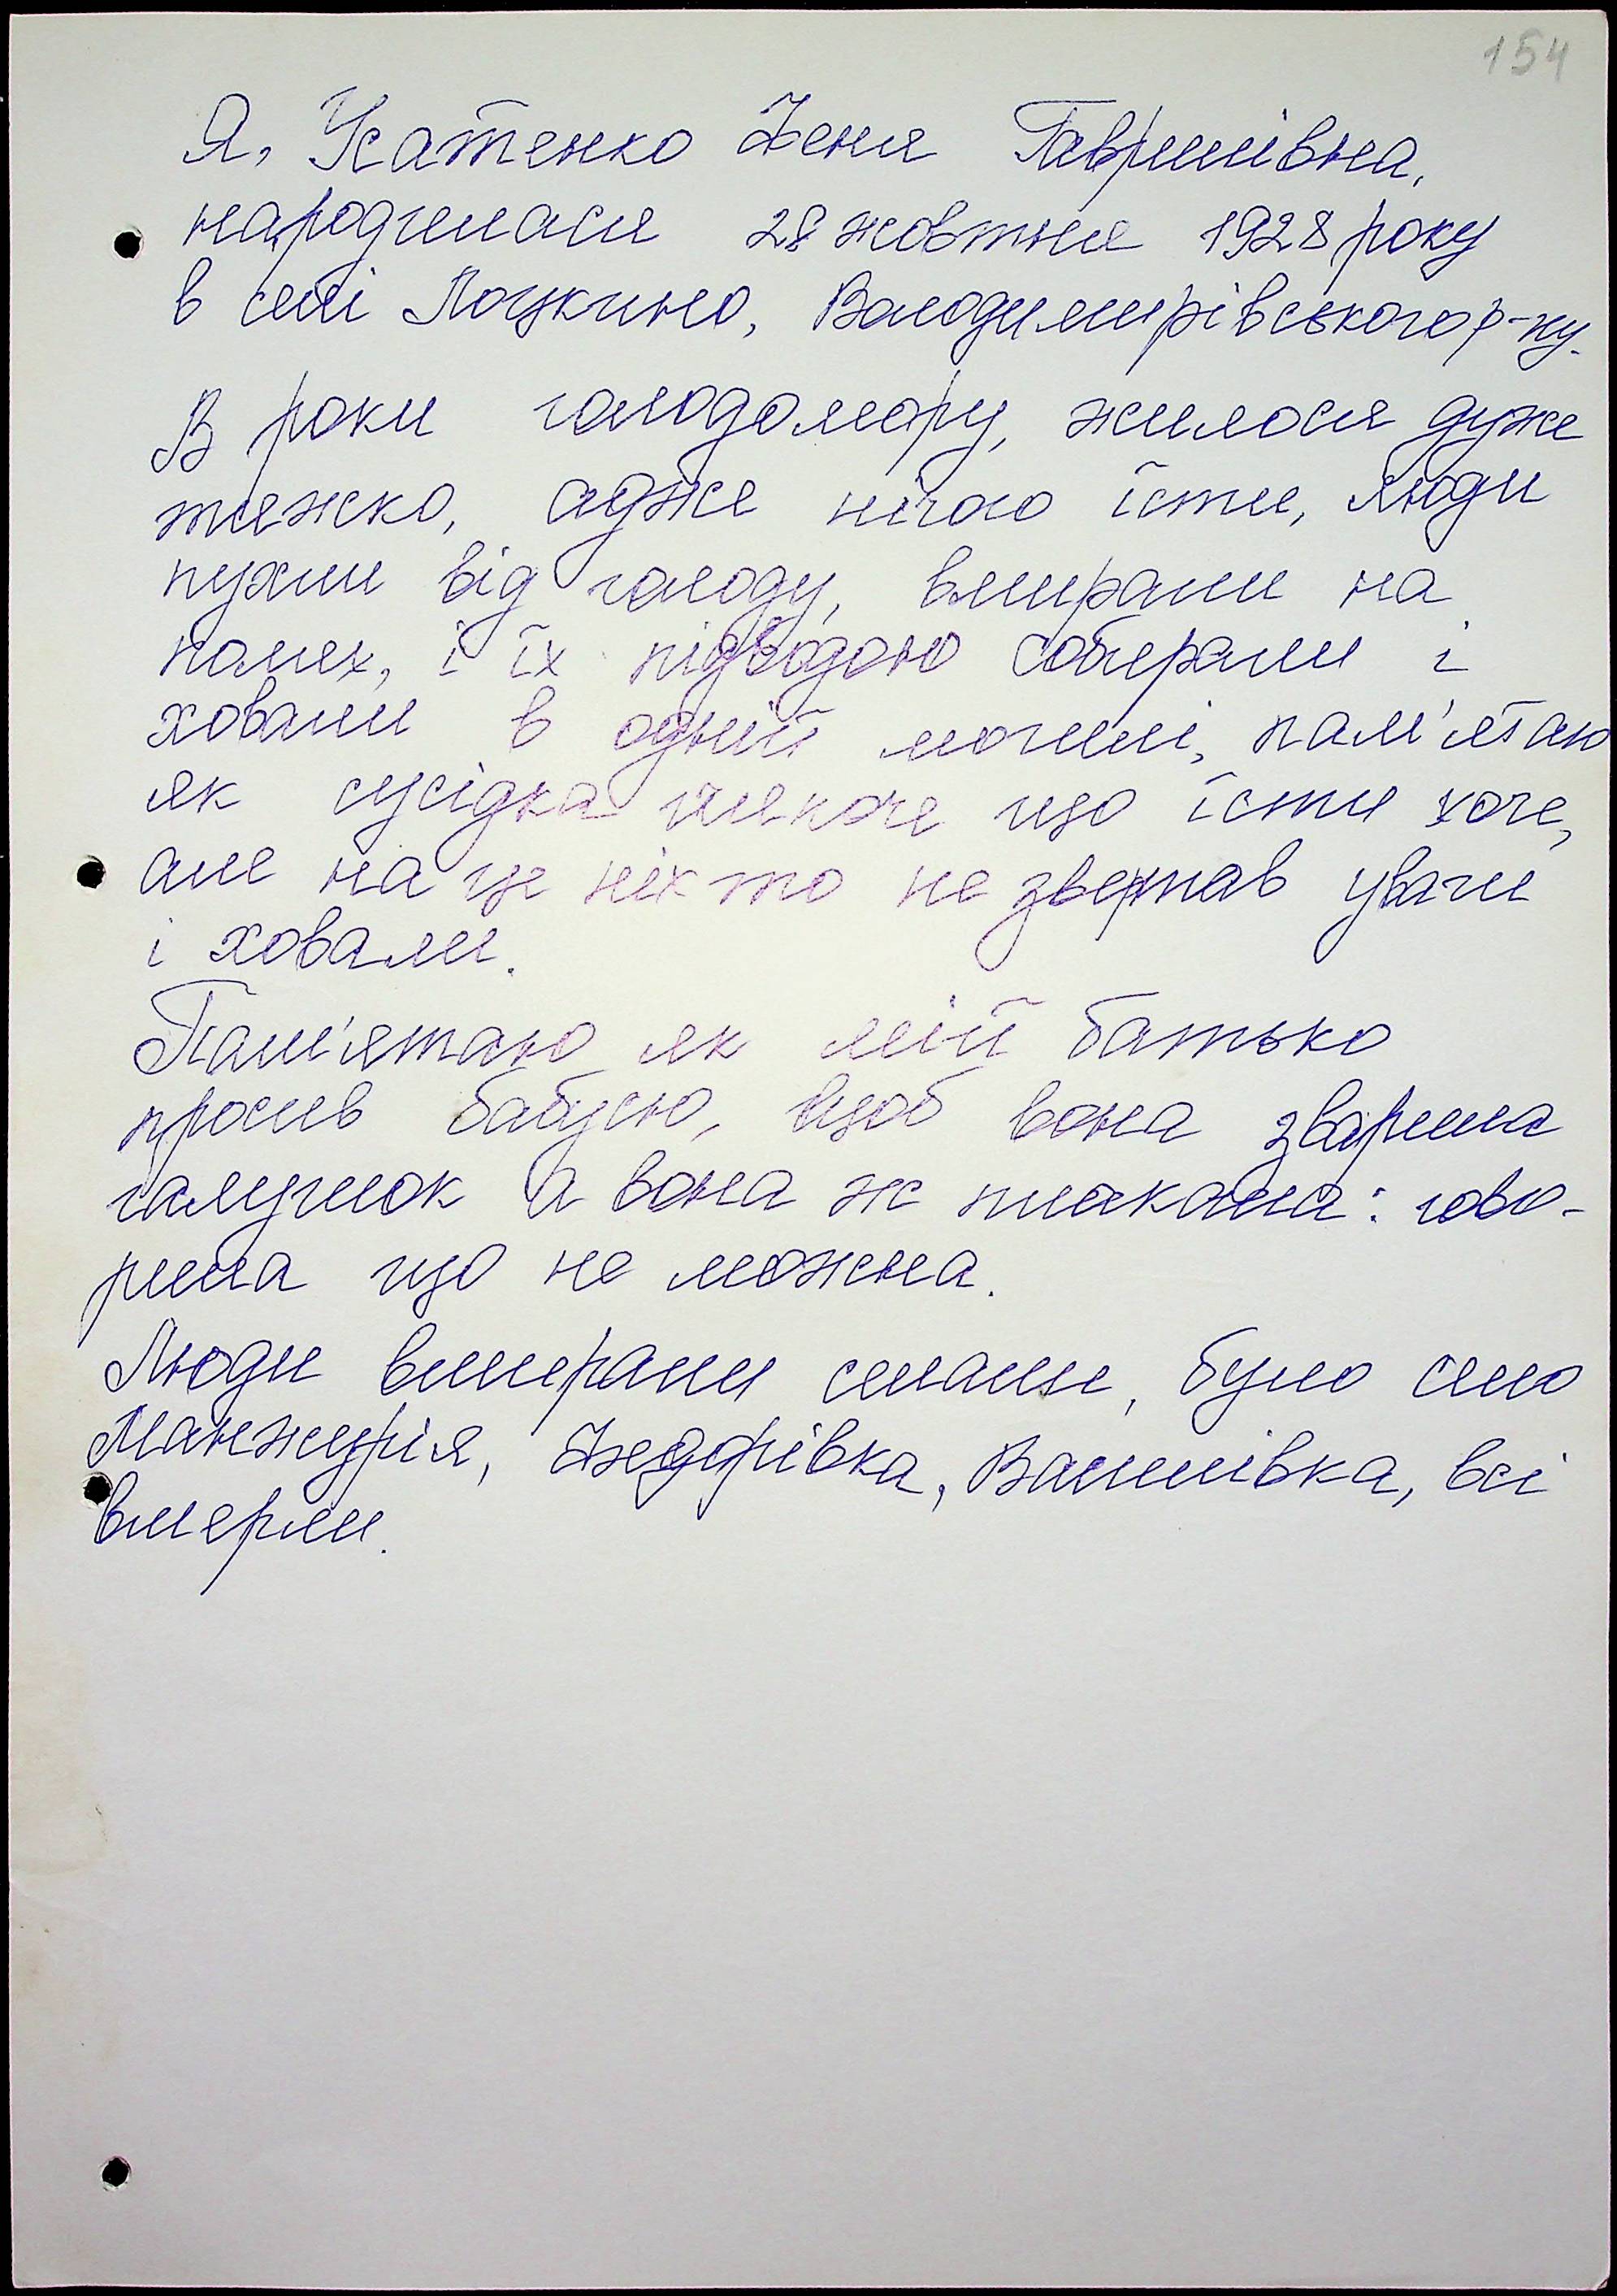 154
Я, Усатенко Женя Гаврилівна,
народилася 28 жовтня 1928 року
в селі Лоцкино, Володимирівського р-ну.
В роки голодомору, жилося дуже
тяжко, адже нічого їсти, люди
пухли від голоду, вмирали на
полях, і їх підводою собирали і
ховали в одній могилі, пам'ятаю
як сусідка що їсти хоче,
але на це ніхто не звертав уваги
і ховали.
Пам'ятаю як мій батько
просив бабусю, щоб вона зварила
галушок а вона ж плакала: гово-
рила що не можна.
Люди вмирали селами, було село
Манжурія, Вашлівка, всі
вмерли.